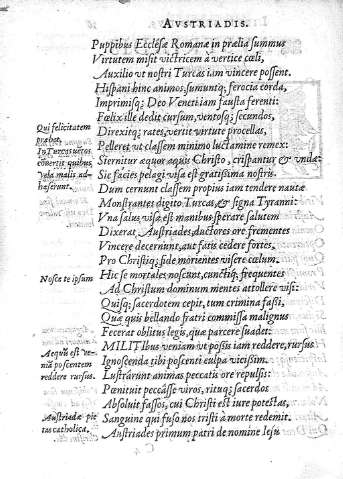 AVSTRIADIS.
Puppibus Ecclesæ Romanæ in prælia summus
Virtutem misit victricem à vertice cœli,
Auxilio vt nostri Turcas iam vincere possent.
Hispani hinc animos, sumuntq; ferocia corda,
Imprimisq; Deo Veneti iam fausta ferenti:
Fœlix ille dedit cursum, ventosq; secundos,
Qui felicitatem
Direxitq; rates, vertit virtute procellas,
præbet,
Pelleret vt classem minimo luctamine remex:
In Turcas uetus
conertit quibus,
Sternitur æquor aquis Christo, crispantur & vndæ:
Sic facies pelagi visa est gratissima nostris.
haserunt.
Dum cernunt classem propius iam tendere nautæ
Monstrantes digito Turcas, & signa Tyranni:
Vna salus visa est manibus sperare salutem
Dixerat Austriades, ductores ore frementes
Vincere decernunt, aut fatis cedere fortes,
Pro Christiq; fide morientes visere cœlum.
Nosce te ipsum
Hic se mortales noscunt, cunctiq; frequentes
Ad Christum dominum mentes attollere visi:
Quisq; sacerdotem cepit, tum crimina fassi,
Quæ quis bellando fratri commissa malignus
Fecerat oblitus legis, quæ parcere suadet:
MILITIbus veniam vt possis iam reddere, rursus
Aequū est ve-
niā poscentem
Ignoscenda tibi poscenti culpa vicissim.
reddere rursus.
Lustrarunt animas peccati ore repulsi:
Pœnituit peccâsse viros, rituq; sacerdos
Absoluit fassos, cui Christi est iure potestas,
Austriadæ pie
tas catholica.
Sanguine qui fuso nos tristi à morte redemit.
Austriades primum patri de nomine Iesu